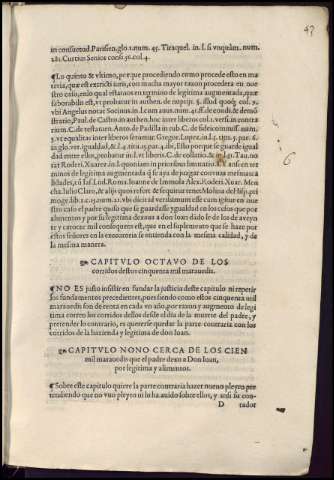 47
in consuetud. Parisien. glo. 1. num. 45. Tiraquel. in l. si vnquàm. num.
281. Curtius Senior consi. 50. col. 4.
¶ Lo quinto & vltimo, por que procediendo como procede esto en ma
teria, que est extricti iuris, con mucha mayor razon procedera en nue
stro caso, enlo qual estamos en termino de legitima augmentada, que
faborabilis est, vt probatur in authen. de nuptijs. §. illud
vbi Angelus notat Socinus. in l. cum auus. ff. de condi. & demõ
stratio, Paul. de Castro. in authen. hoc inter liberos col.1. versi. in contra
rium. C. de testamen. Anto. de Padilla in rub. C. de fideicomiss. num.
7. vt equalitas inter liberos seruetur. Gregor. Lopez. in l. 4. titu. 5. par. 6.
in glo. ver. igualdad, & l. 4. titu. 15. part. 4. ibi, Esto por que se guarde igual
dad entre ellos, probatur in
tat Roderi. Xuarez in l. quoniam in prioribus limitatio. 7. ansi en ter
minos de legitima augmentada q̃ se aya de juzgar con vna mesma
lidades,
chi. Iulio Claro, & alij quos refert & sequitur tenet Molina
mog. lib. 2. c. 12. num. 21. vbi dicit id verissimum esse cum igitur en nue
stro caso el padre quiso que se guardasse ygualdad en los ocho que por
alimentos y por su legitima dexaua a don Ioan dado se le de los de ayero
te y catorze mil consiguiente es, que en el suplemento que se haze por
estos señores en la executoria se entienda con la mesma calidad, y de
la mesma manera.
CAPITVLO OCTAVO DE LOS
corridos destos cinquenta mil marauedis.
¶ NO ES justo insistir en fundar la justicia deste capitulo ni repetir
los fundamentos precedentes, por siendo como estos cinquenta mil
marauedis son de renta en cada vn año, por razon y augmento de legi
tima corren los corridos dellos desde el dia de la muerte del padre, y
pretender lo contrario, es quererse quedar la parte contraria con los
corridos de la hazienda y legitima de don Ioan.
CAPITVLO NONO CERCA DE LOS CIEN
mil marauedis que el padre dexo a Don Ioan,
por legitima y alimentos.
¶ Sobre este capitulo quiere la parte contraria hazer nueuo pleyto pre
tendiendo que no vuo pleyto ni lo ha auido sobre ellos, y ansi su con-
D tador
6